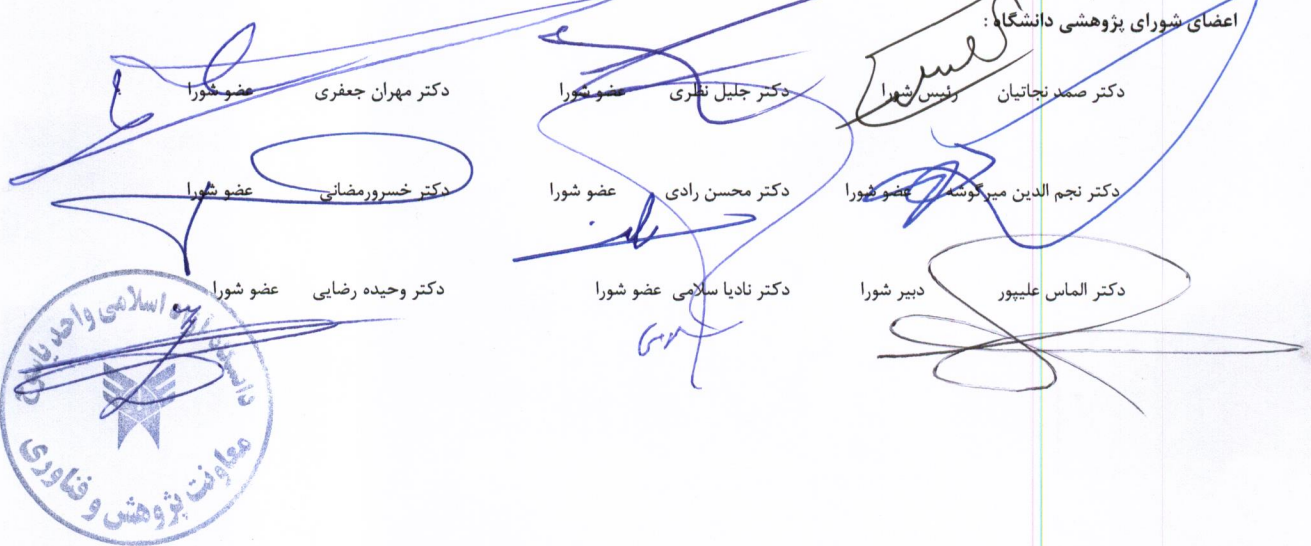 اعضای شورای پژوهشی دانشگاه :
دکتر صمد نجاتیان رئیس شورا دکتر جلیل نظری عضو شورا دکتر مهران جعفری عضو شورا
دکتر نجم الدین میرگوشه عضو شورا دکتر محسن رادی عضو شورا دکتر خسرورمضانی عضو شورا
دکتر الماس علیپور دبیر شورا دکتر نادیا سلامی عضو شورا دکتر وحیده رضایی عضو شورا
اسلامی واحد
معاونت پژوهش و فناوری